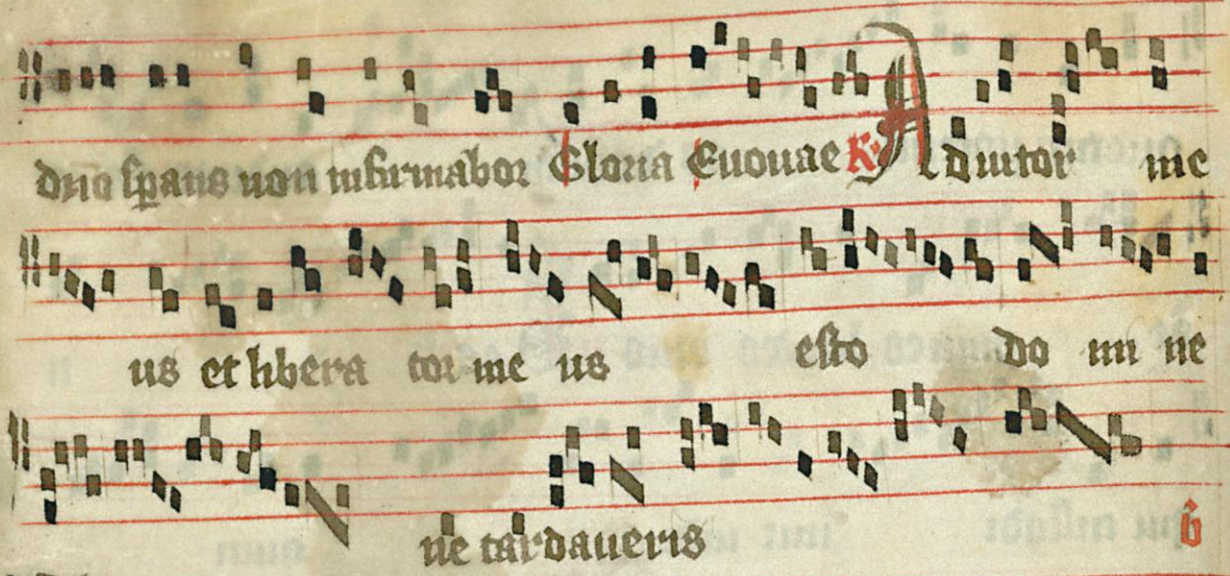 dn̄o sꝑans non infirmabor Gloria Euouae R. Adiutor me
us et libera tor me us esto do mi ne
ne tardaueris